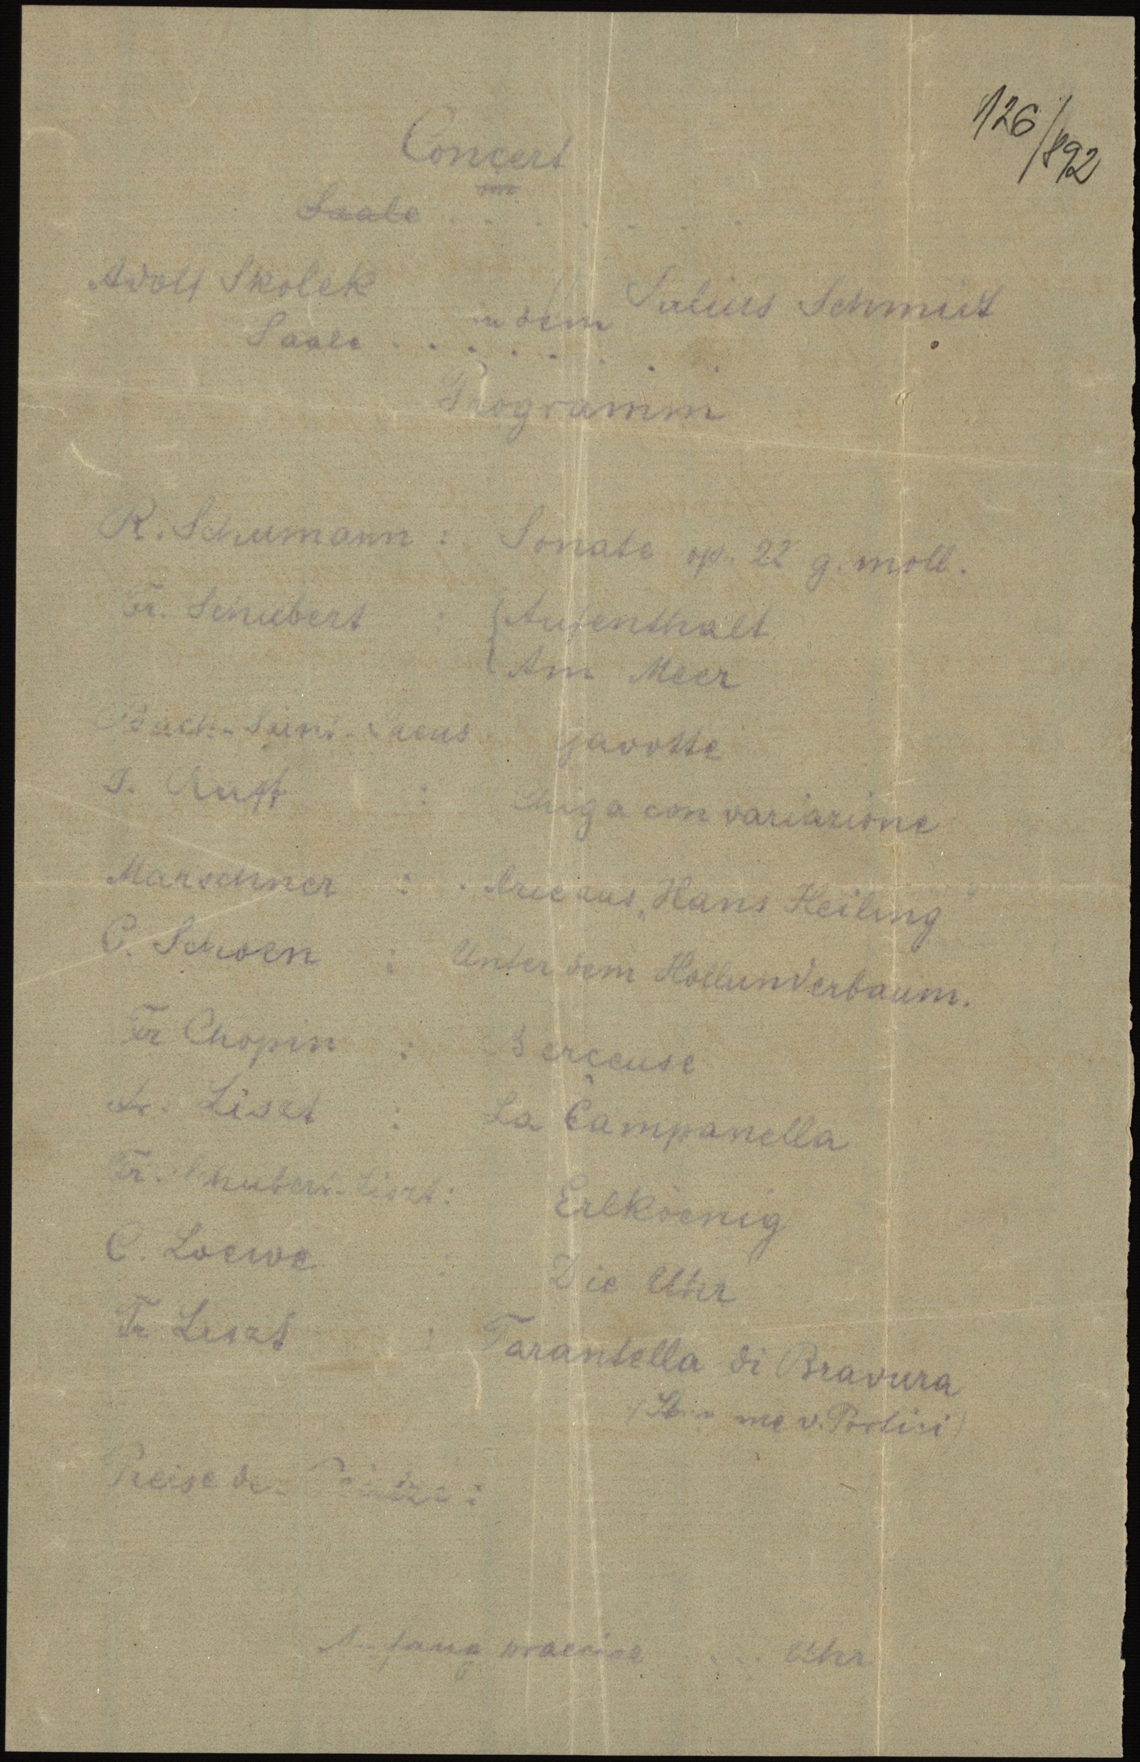 126/892
Concert
im
Saale . . . . . . .
Adolf Skolek Julius Schmidt
in dem
Saale . . . . . . . .
Programm
R. Schumann : Sonate op. 22 g. moll.
Fr. Schubert : { Aufenthalt
Am Meer
Bach-Saint-Saens gavotte
J. Raff : Giga con variazione
Marschner : Arie aus „Hans Heiling"
C. Schoen : Unter dem Hollunderbaum.
Fr Chopin : Berceuse
Fr. Liszt : La Campanella
Fr. Schubert-Liszt : Erlkoenig
C. Loewe : Die Uhr
Fr Liszt : Tarantella di Bravura
(Stumme v. Portici)
Preise der Plätze :
Anfang praecise . . . Uhr